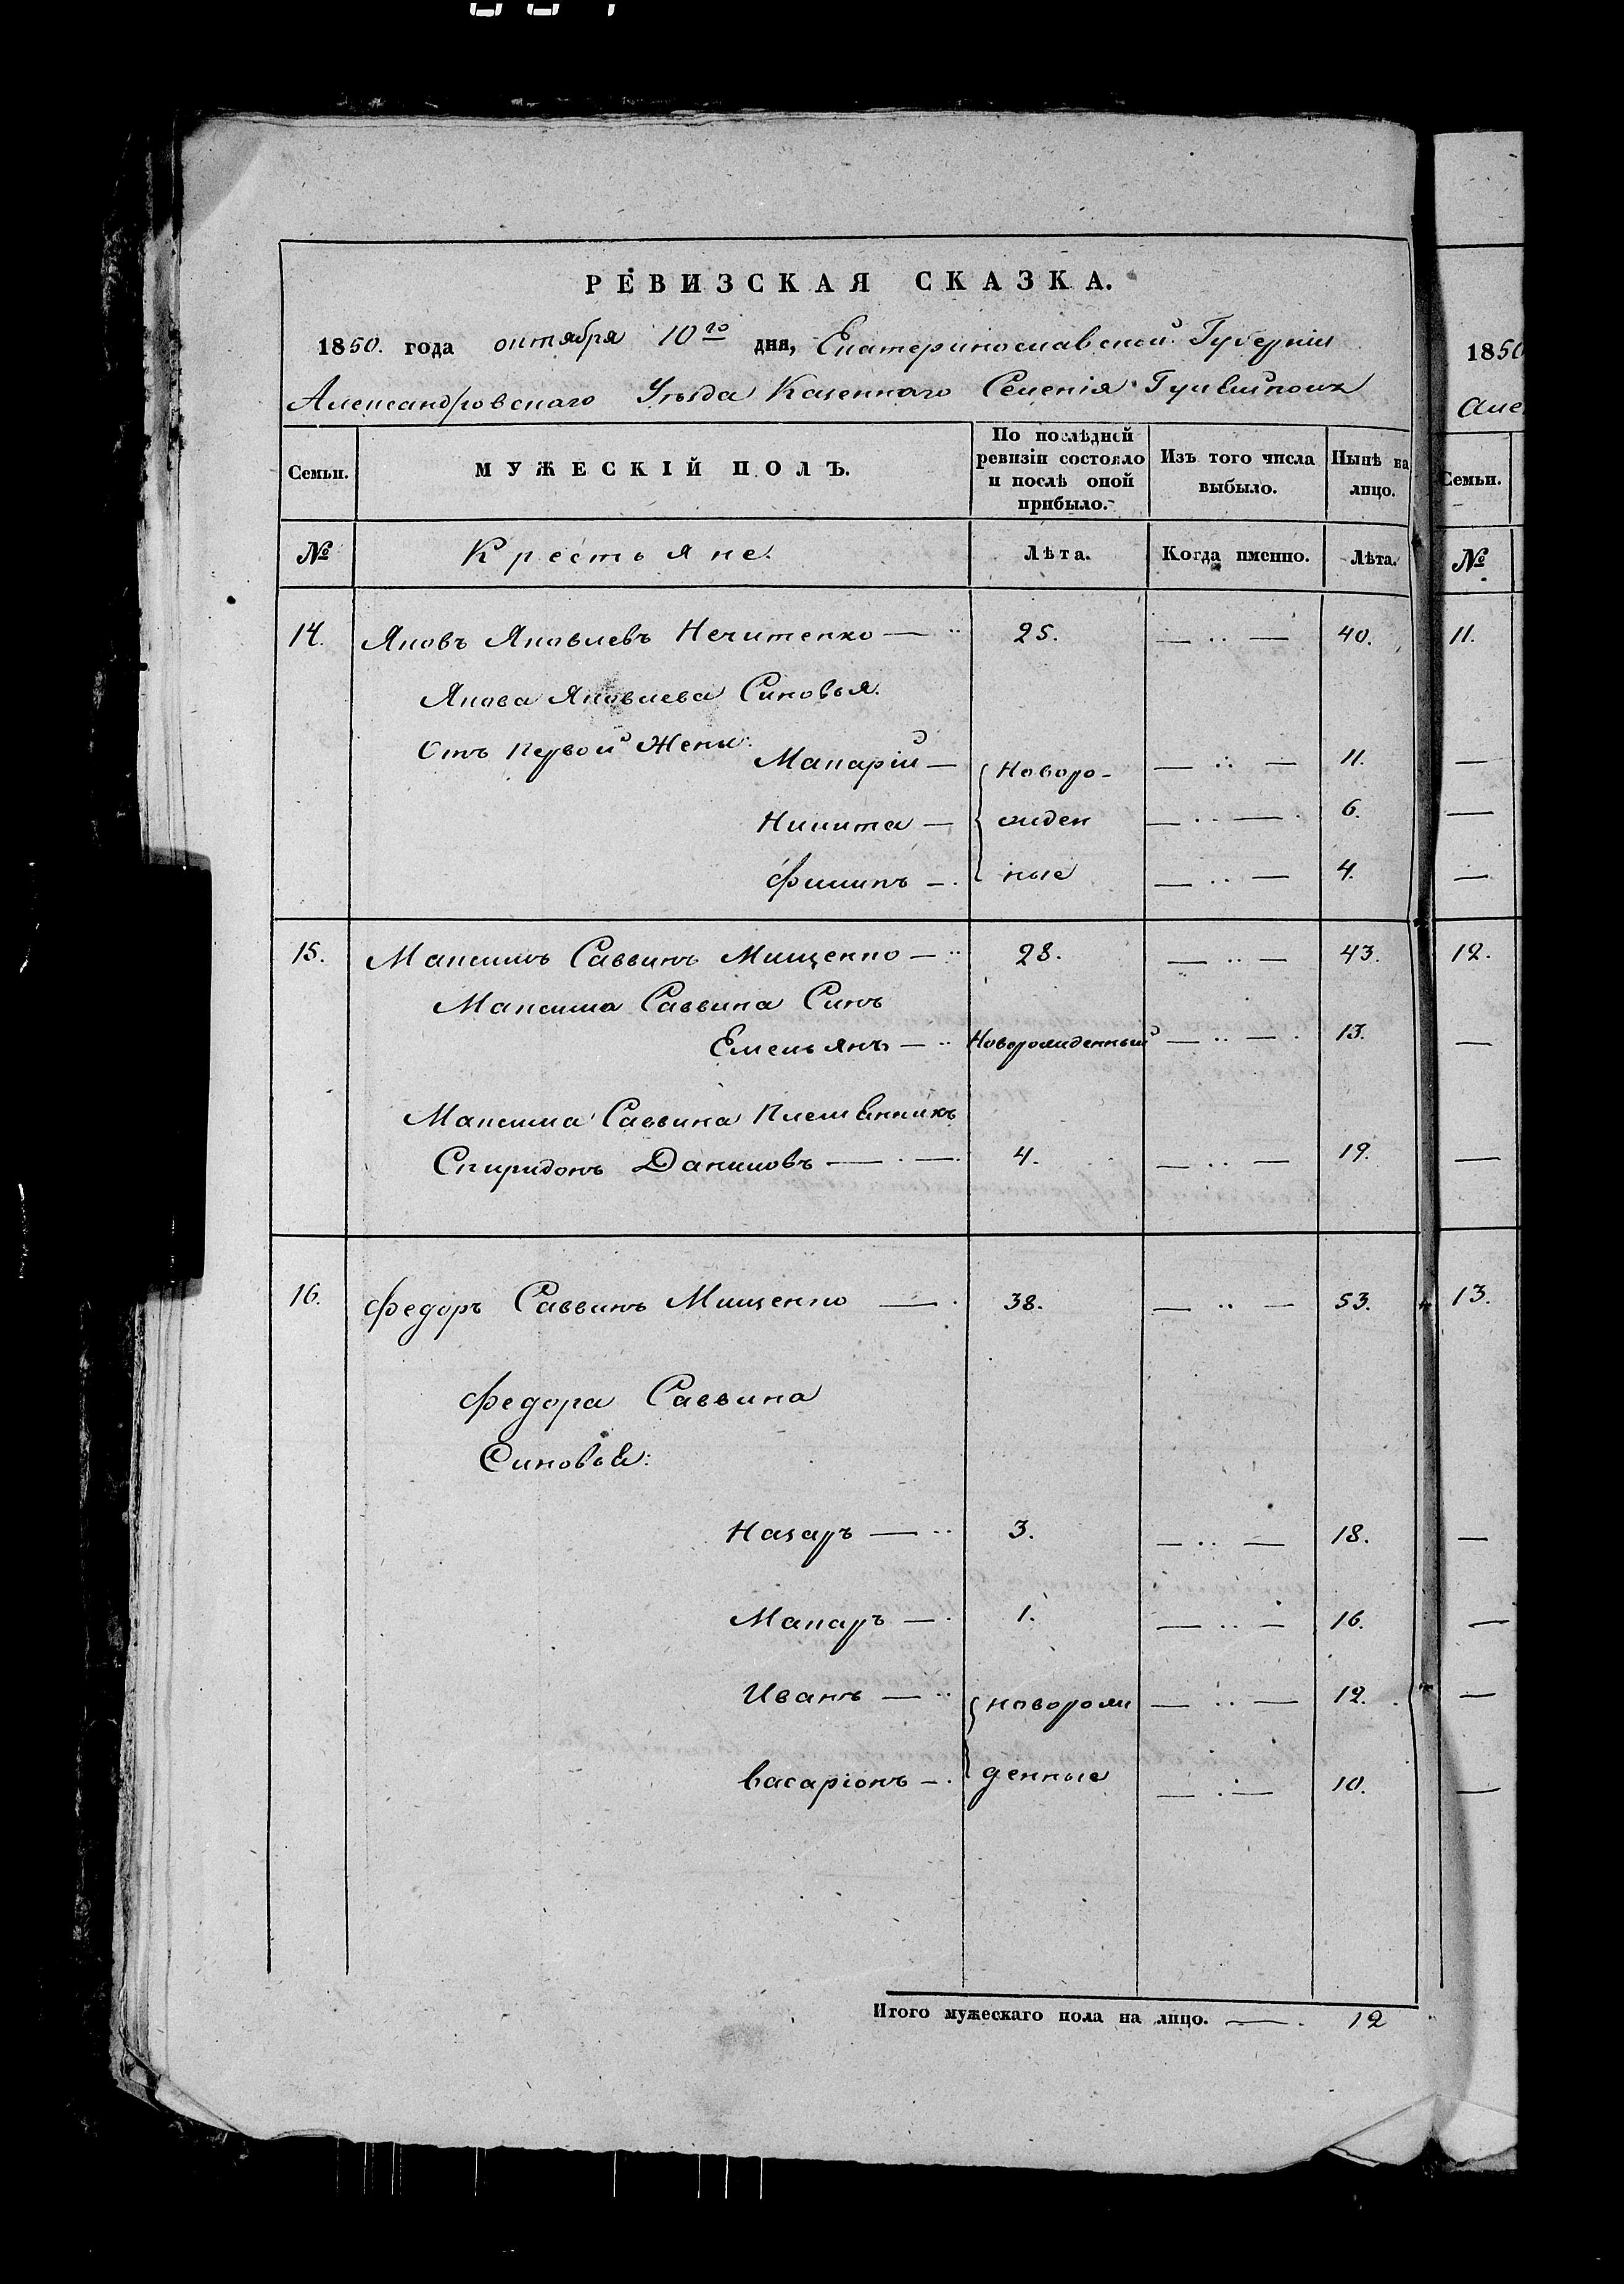 РЕВИЗСКАЯ СКАЗКА.
1850. года октября 10го дня, Екатеринославской Губерніи
Александровскаго Уѣзда Казеннаго Селенія
Семьи. МУЖЕСКІЙ ПОЛЪ. По послѣдней ревизіи состояло и послѣ оной прибыло. Изъ того числа выбыло. Нынѣ на лицо.
№ Крестьяне. Лѣта. Когда именно. Лѣта.
14. Яковъ Яковлевъ Нечитенко — 25. — .. — 40.
Якова Яковлева Синовья.
Отъ первой Жены:
Макарій — Новоро- — .. — 11.
Никита — жден — .. — 6.
Филипъ — ные — .. — 4.
15. Максимъ Саввинъ Мищенко — 28. — .. — 43.
Максима Саввина Синъ
Емельянъ — Новорожденный — .. — 13.
Максима Саввина Племянникъ
Спиридонъ Даниловъ — 4. — .. — 19.
16. Федоръ Саввинъ Мищенко — 38. — .. — 53.
Федора Саввина
Синовья:
Назаръ — 3. — .. — 18.
Макаръ — 1. — .. — 16.
Иванъ — новорож — .. — 12.
Васаріонъ — денные — . — 10.
Итого мужескаго пола на лицо. — 12
1850
Але
Семьи.
№
11.
—
—
—
12.
—
—
13.
—
—
—
—